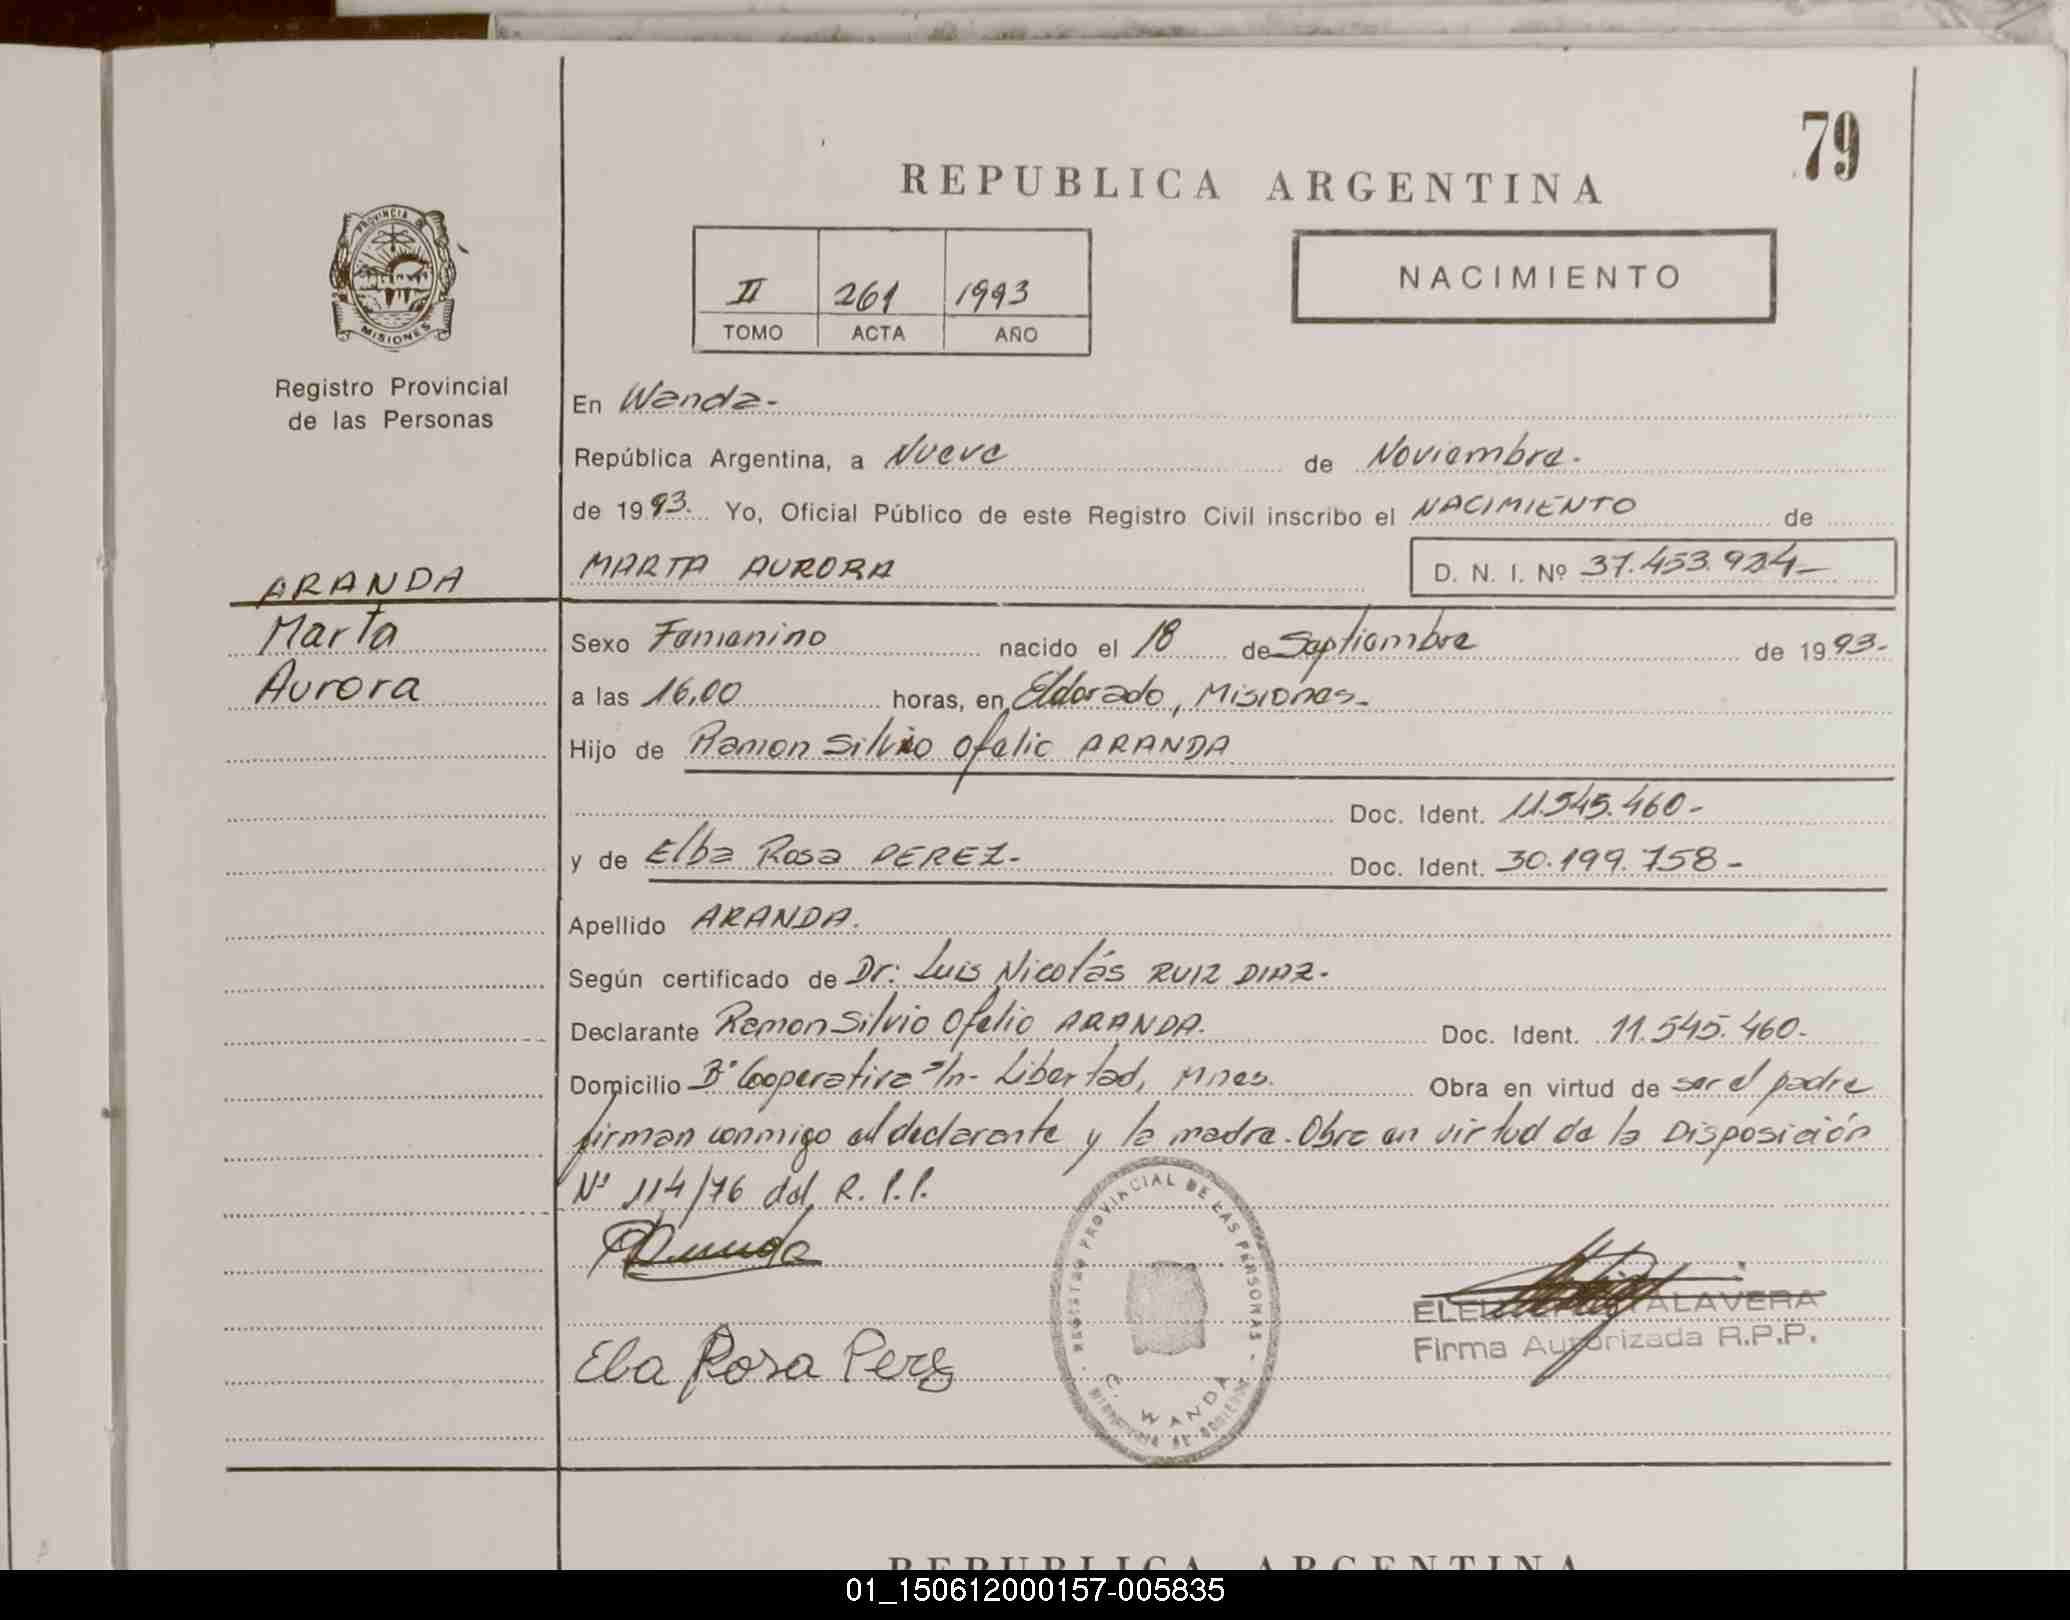 79
REPUBLICA ARGENTINA
PROVINCIA DE
MISIONES
Registro Provincial
de las Personas
II 261 1993
TOMO ACTA AÑO
NACIMIENTO
En Wanda-
República Argentina, a Nueve de Noviembre.
de 1993. Yo, Oficial Público de este Registro Civil inscribo el NACIMIENTO de
MARTA AURORA D. N. I. Nº 37.453.924-
ARANDA
Marta
Aurora
Sexo Femenino nacido el 18 de Septiembre de 1993-
a las 16,00 horas, en Eldorado, Misiones-
Hijo de Ramon Silvio Ofelio ARANDA
Doc. Ident. 11.545.460-
y de Elba Rosa PEREZ- Doc. Ident. 30.199.758-
Apellido ARANDA.
Según certificado de Dr: Luis Nicolás RUIZ DIAZ-
Declarante Ramon Silvio Ofelio ARANDA. Doc. Ident. 11.545.460-
Domicilio Bº Cooperativa S/n- Libertad, Mnes. Obra en virtud de ser el padre
firman conmigo el declarante y la madre. Obra en virtud de la Disposición
Nº 114/76 del R.P.P.
REGISTRO PROVINCIAL DE LAS PERSONAS
WANDA
Elba Rosa Perez
TALAVERA
Firma Autorizada R.P.P.
REPUBLICA ARGENTINA
01_150612000157-005835